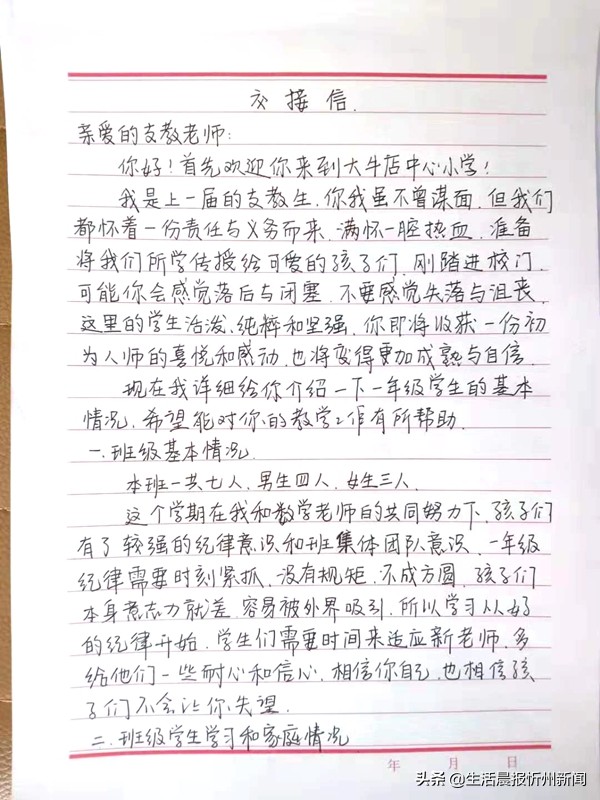 交接信.
亲爱的支教老师:
你好!首先欢迎你来到大牛店中心小学!
我是上一届的支教生,你我虽不曾谋面,但我们
都怀着一份责任与义务而来,满怀一腔热血,准备
将我们所学传授给可爱的孩子们,刚踏进校门,
可能你会感觉落后与闭塞,不要感觉失落与沮丧,
这里的学生活泼、纯粹和坚强,你即将收获一份初
为人师的喜悦和感动,也将变得更加成熟与自信.
现在我详细给你介绍一下一年级学生的基本
情况,希望能对你的教学工作有所帮助.
一.班级基本情况
本班一共七人,男生四人,女生三人.
这个学期在我和数学老师的共同努力下,孩子们
有了较强的纪律意识和班集体团队意识,一年级
纪律需要时刻紧抓,没有规矩,不成方圆,孩子们
本身意志力就差,容易被外界吸引,所以学习从好
的纪律开始,学生们需要时间来适应新老师,多
给他们一些耐心和信心,相信你自己,也相信孩
子们不会让你失望.
二.班级学生学习和家庭情况
年 月 日
头条@生活晨报忻州新闻